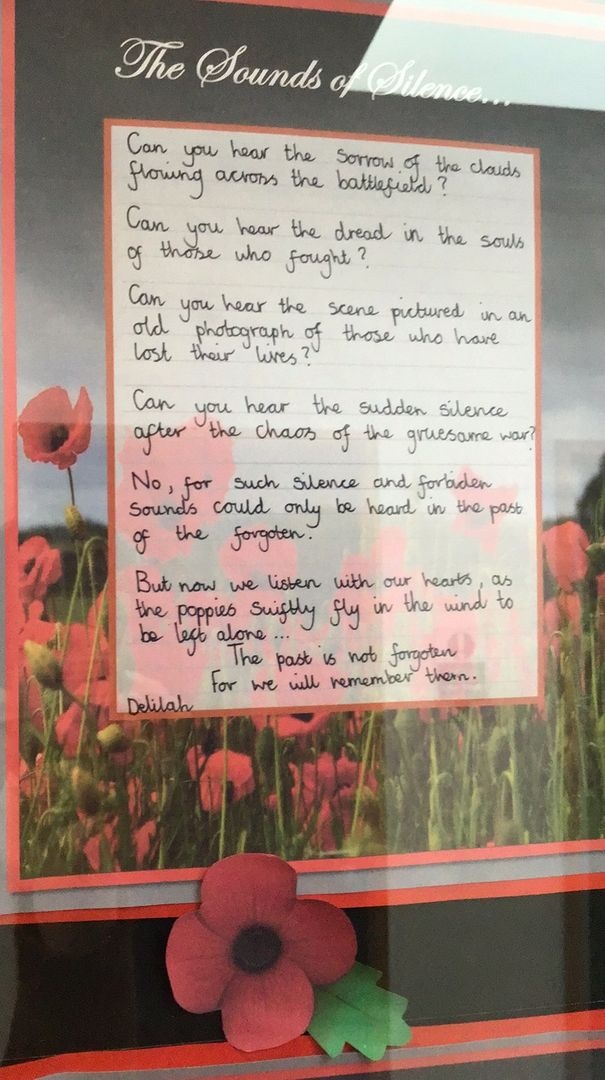 The Sounds of Silence...
Can you hear the sorrow of the clouds
flowing across the battlefield?
Can you hear the dread in the souls
of those who fought?
Can you hear the scene pictured in an
old photograph of those who have
lost their lives?
Can you hear the sudden silence
after the chaos of the gruesome war?
No, for such silence and forbiden
sounds could only be heard in the past
of the forgoten.
But now we listen with our hearts, as
the poppies swiftly fly in the wind to
be left alone...
The past is not forgoten
For we will remember them.
Delilah